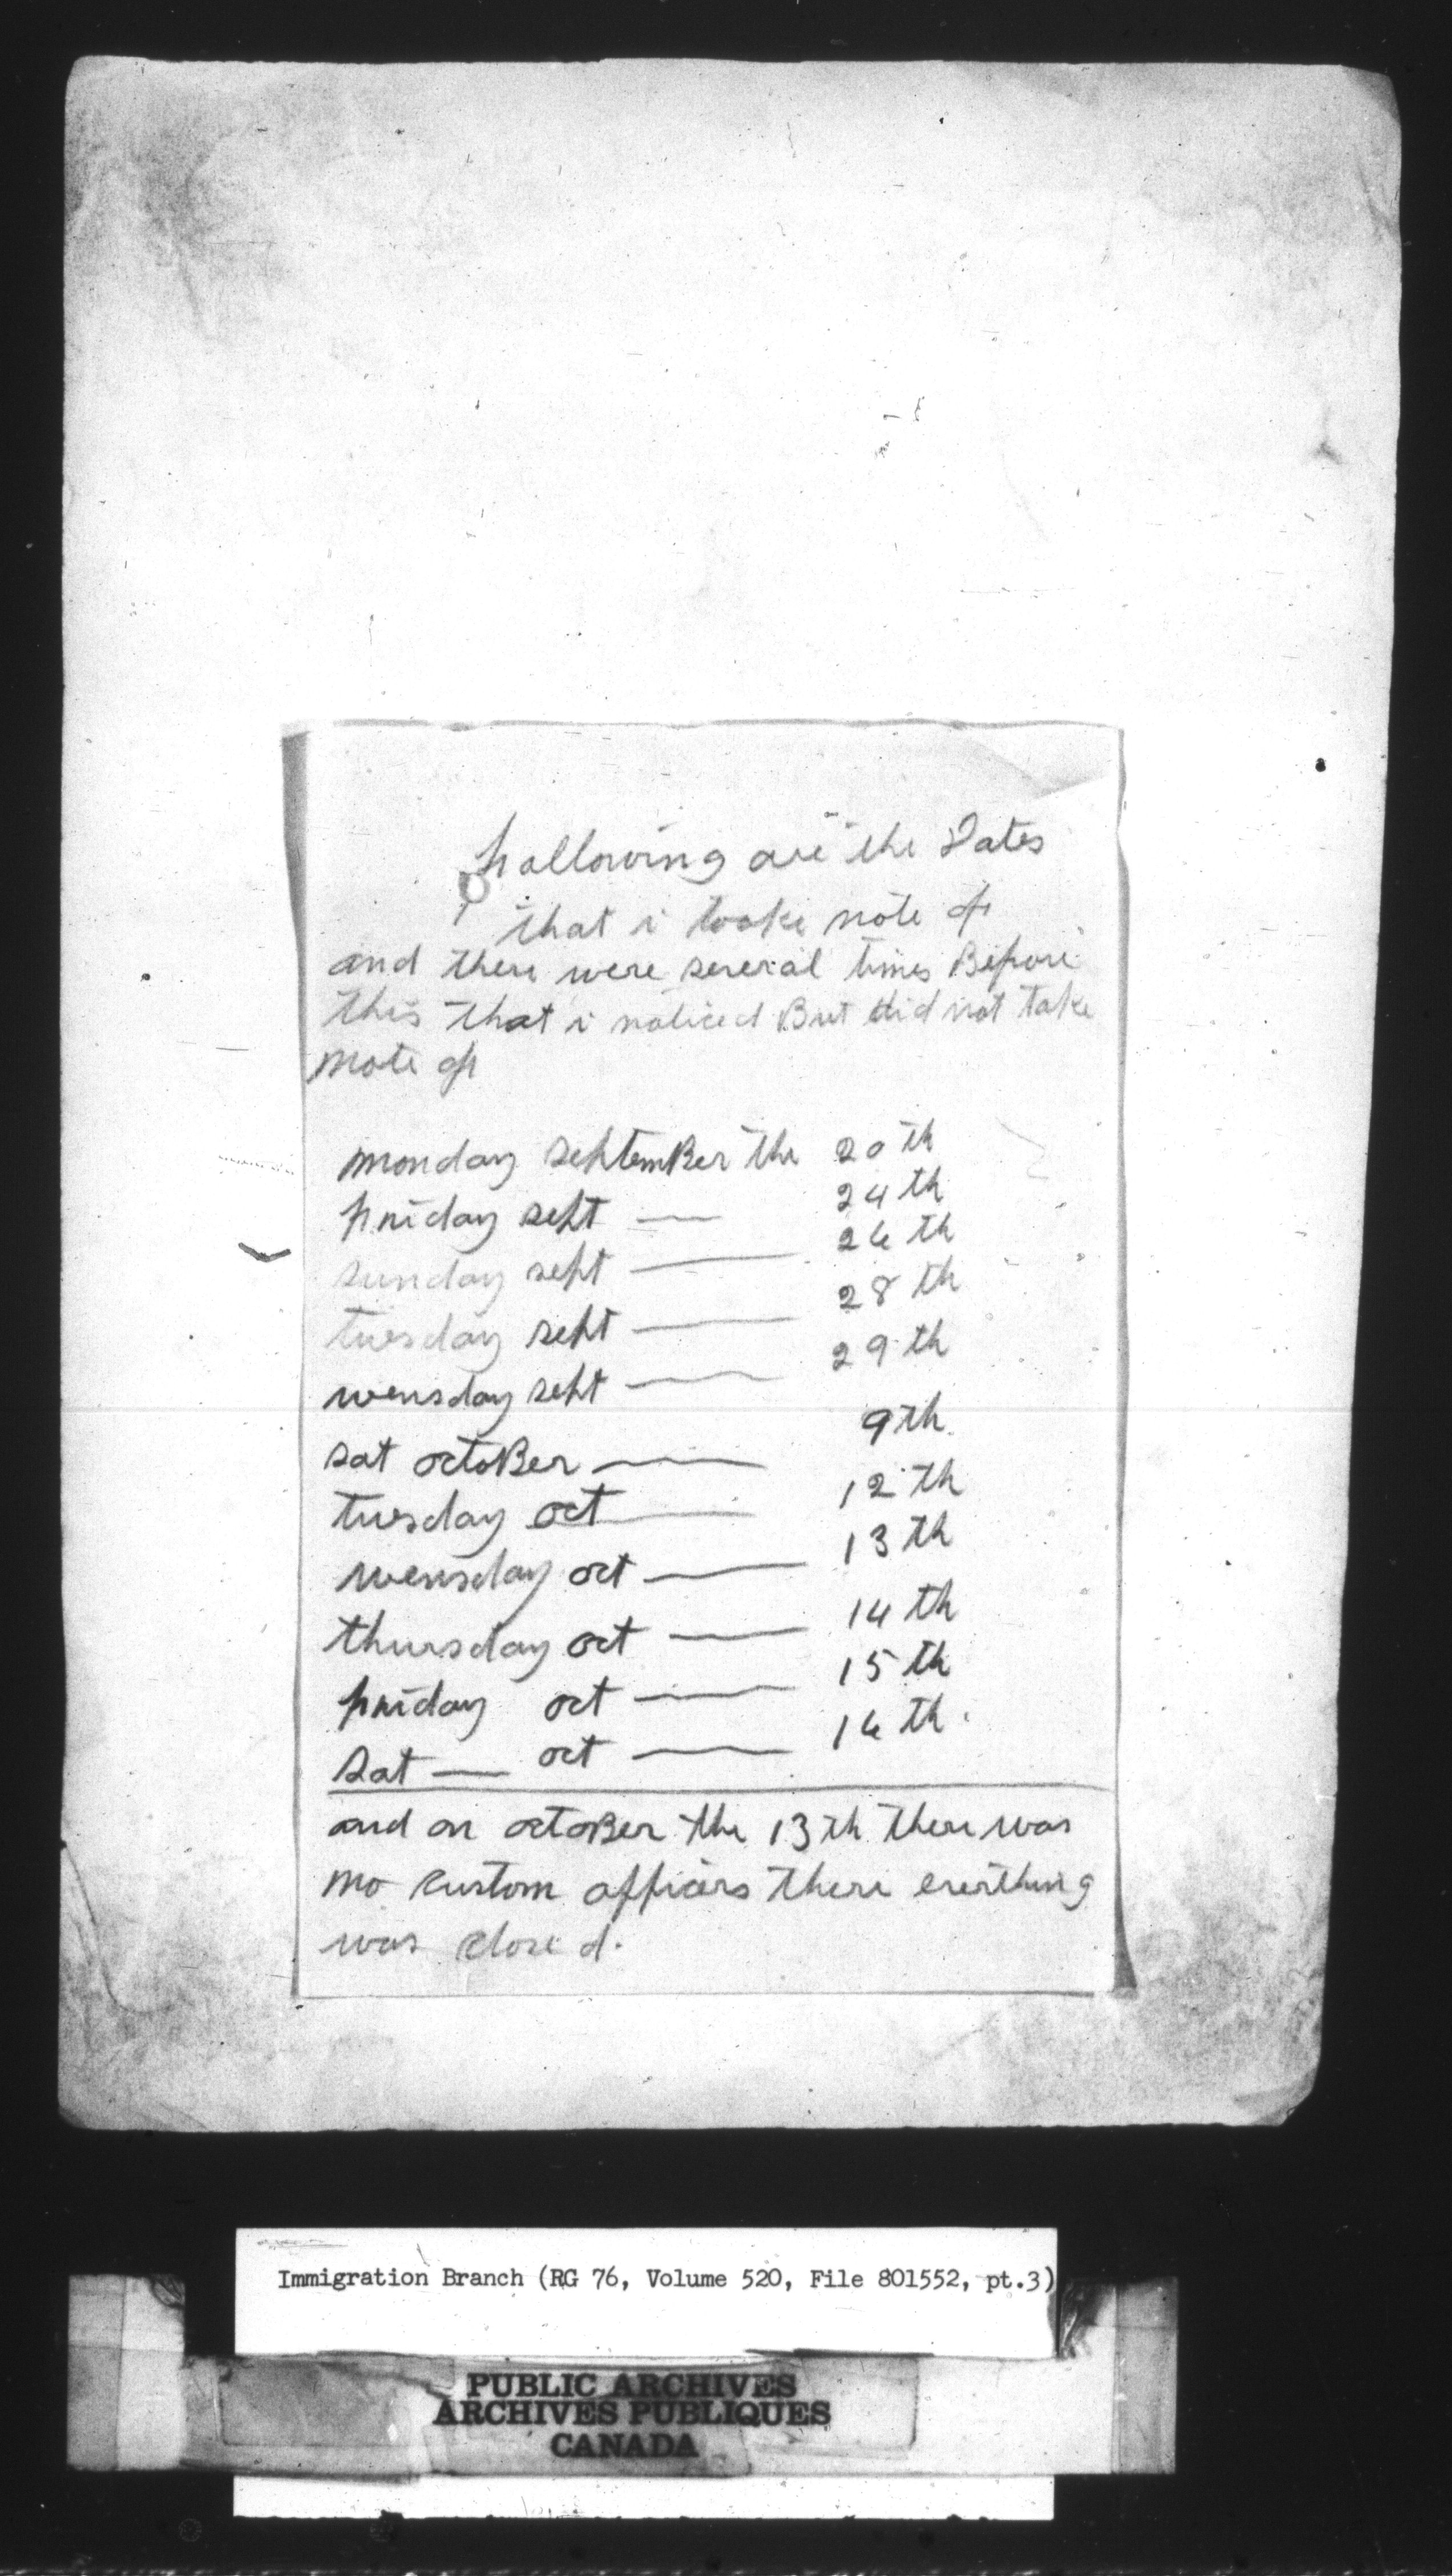 following are the Dates
that i tooke note of
and there were several times Before
this that i noticed But did not take
note of
monday septemBer the 20th
friday sept — 24th
sunday sept — 26th
tuesday sept — 28th
wensday sept — 29th
sat octoBer — 9th.
tuesday oct — 12th
wensday oct — 13th
thursday oct — 14th
friday oct — 15th
sat — oct — 16th.
and on octoBer the 13th there was
no custom officers there everthing
was closed.
Immigration Branch (RG 76, Volume 520, File 801552, pt.3)
PUBLIC ARCHIVES
ARCHIVES PUBLIQUES
CANADA